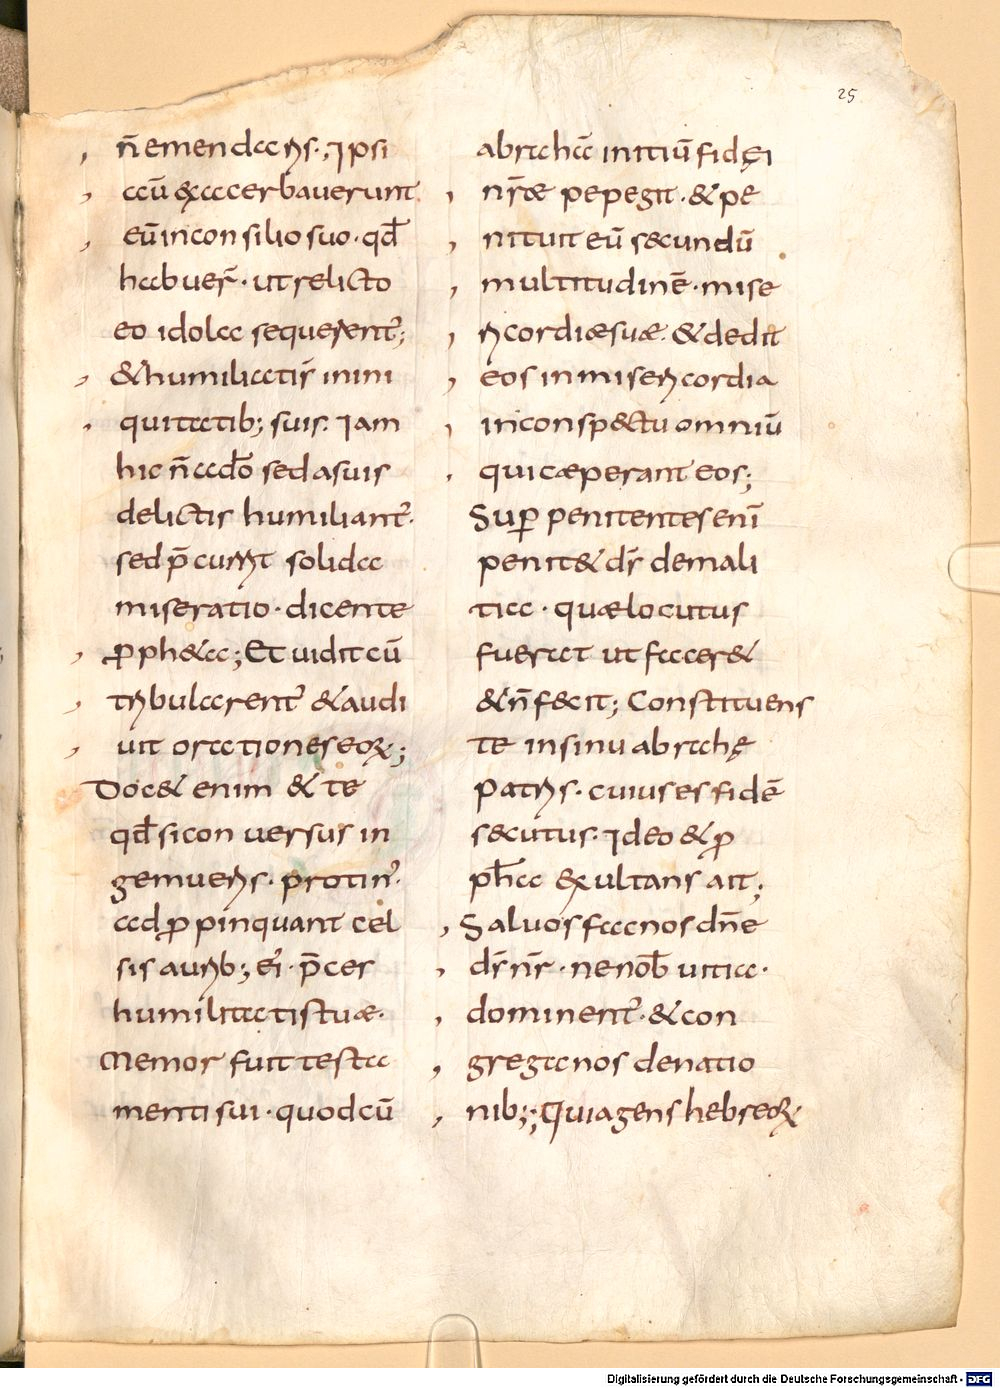 25
n̄ emendaris·; Ipsi
aū exacerbaverunt
eū in consilio suo · qd̄
habuer̄ · ut relicto
eo idola sequerent᷑;
& humiliatiſ inini
quitatib; suis. Iam
hic n̄ ado sed a suis
delictis humiliant᷑·
sed p̄currit solida
miseratio · dicente
ꝓph&a; Et vidit cū
tribularent᷑ & audi
vit orationes eoꝝ;
Doc& enim & te
qd̄ si conversus in
gemueris · protin᷑·
adꝓpinquant cel
sis aurib; ei᷑ · p̄cer
humilitatis tuæ·
Memor fuit testa
menti sui · quod cū
abrahā initiū fidęi
nr̄æ pepegit · & pe
nituit eū secundū
multitudinē · mise
ricordiæ suæ · & dedit
eos in misericordia
in consp&tu omniū
qui cæperant eos;
Suꝑ penitentes enī
penit& dſ̄ de mali
tia · quæ locutus
fuerat ut facer&
& n̄ fecit; Constituens
te in sinu abrahę
Patris · cuius es fidē
secutus · Ideo & ꝓ
ph̄a exultans ait;
Salvos fac nos dn̄e
dſ̄ nr̄ · ne nob̄ vitia·
dominent᷑ · & con
grega nos de natio
nib;; Quia gens hebreoꝝ
Digitalisierung gefördert durch die Deutsche Forschungsgemeinschaft - DFG